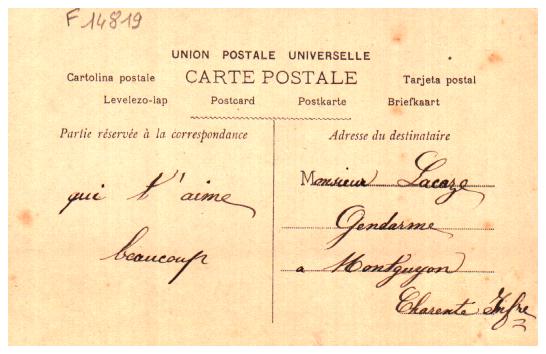 F 14819
UNION POSTALE UNIVERSELLE
Cartolina postale CARTE POSTALE Tarjeta postal
Levelezo-lap Postcard Postkarte Briefkaart
Partie réservée à la correspondance
qui t'aime
beaucoup
Adresse du destinataire
Monsieur Lacaze
Gendarme
a Montguyon
Charente Infre